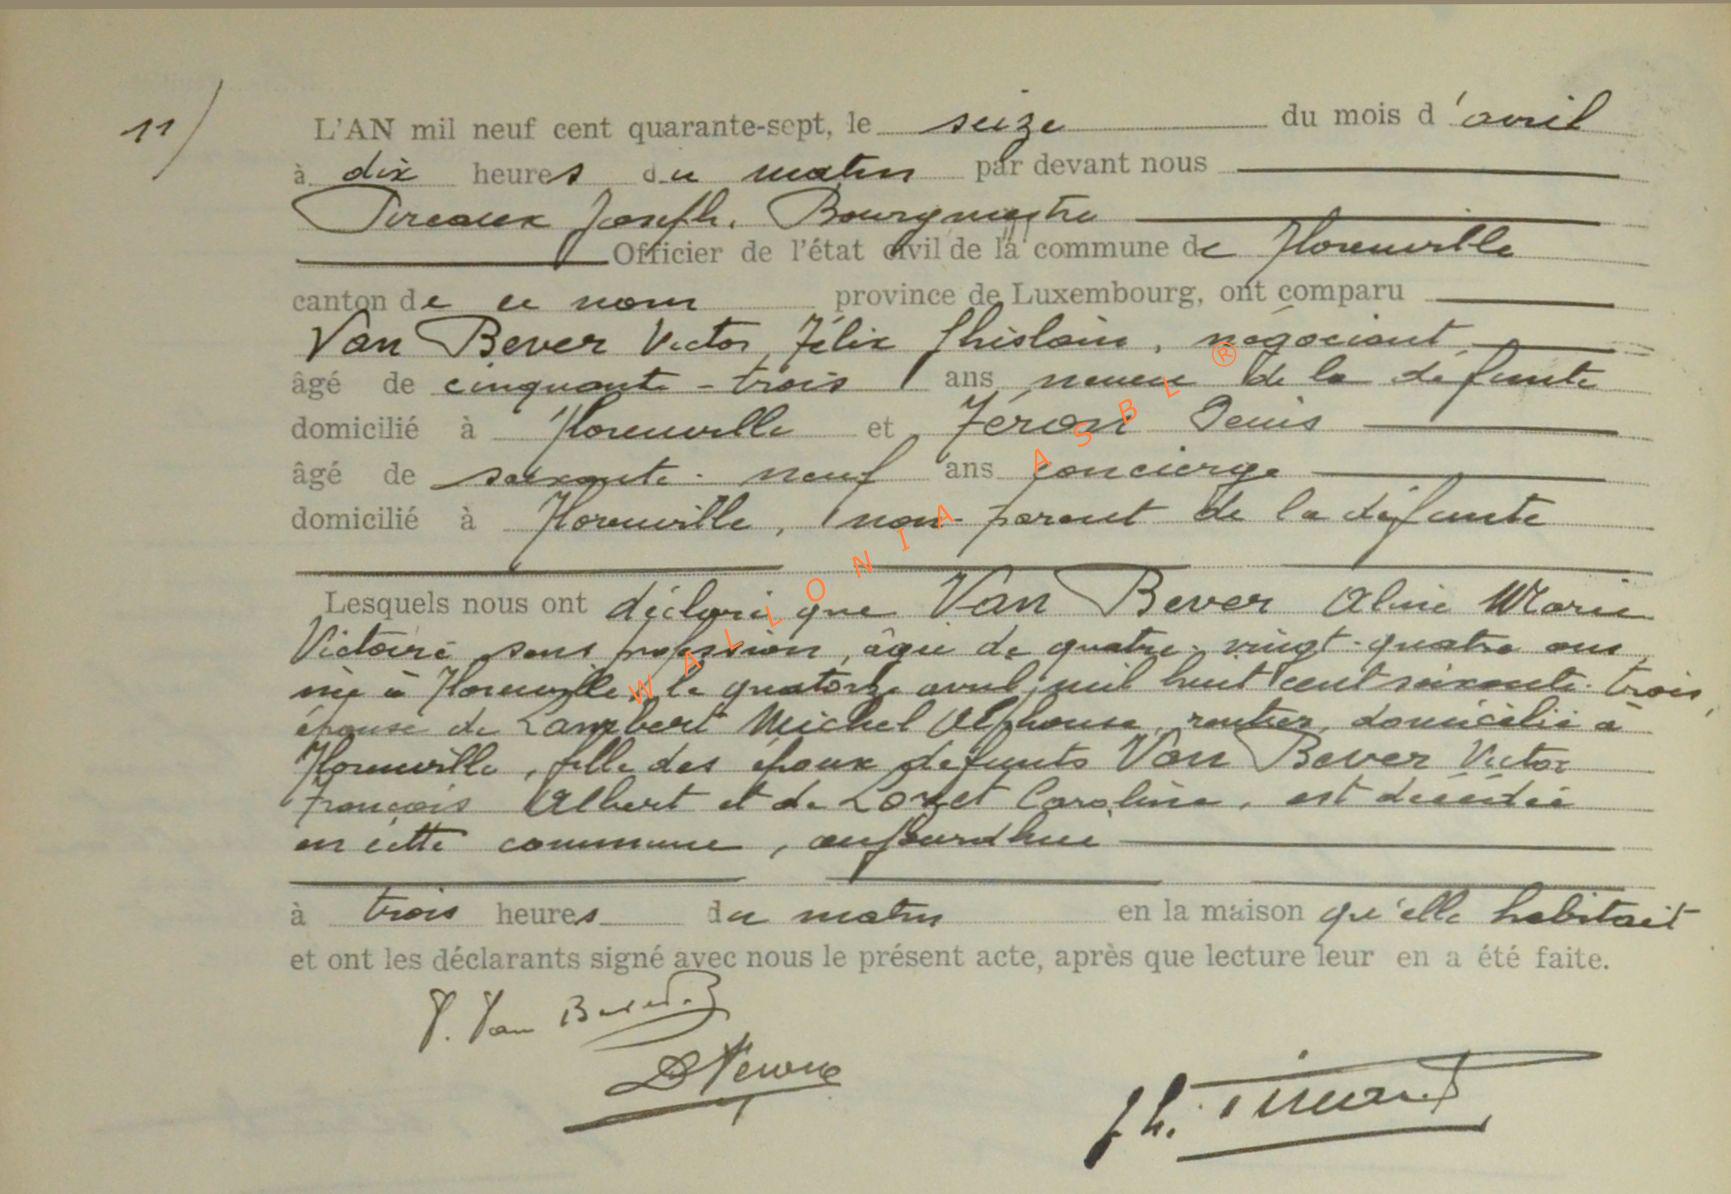 11/
L'AN mil neuf cent quarante-sept, le seize du mois d'avril
à dix heures du matin par devant nous
Pireaux Joseph. Bourgmestre
Officier de l'état civil de la commune de Florenville
canton de ce nom province de Luxembourg, ont comparu
Van Bever Victor, Félix Ghislain, négociant
âgé de cinquante-trois ans neveu de la défunte
domicilié à Florenville et Féron Denis
âgé de soixante-neuf ans concierge
domicilié à Florenville, non-parent de la défunte
Lesquels nous ont déclaré que Van Bever Aline Marie
Victoire sans profession, âgée de quatre-vingt-quatre ans,
née à Florenville, le quatorze avril mil huit cent soixante-trois,
épouse de Lambert Michel Alphonse, rentier, domicilié à
Florenville, fille des époux défunts Van Bever Victor
François Albert et de Caroline, est décédée
en cette commune, aujourd'hui
à trois heures du matin en la maison qu'elle habitait
et ont les déclarants signé avec nous le présent acte, après que lecture leur en a été faite.
V. Van Bever
WALLONIA ASBL ®